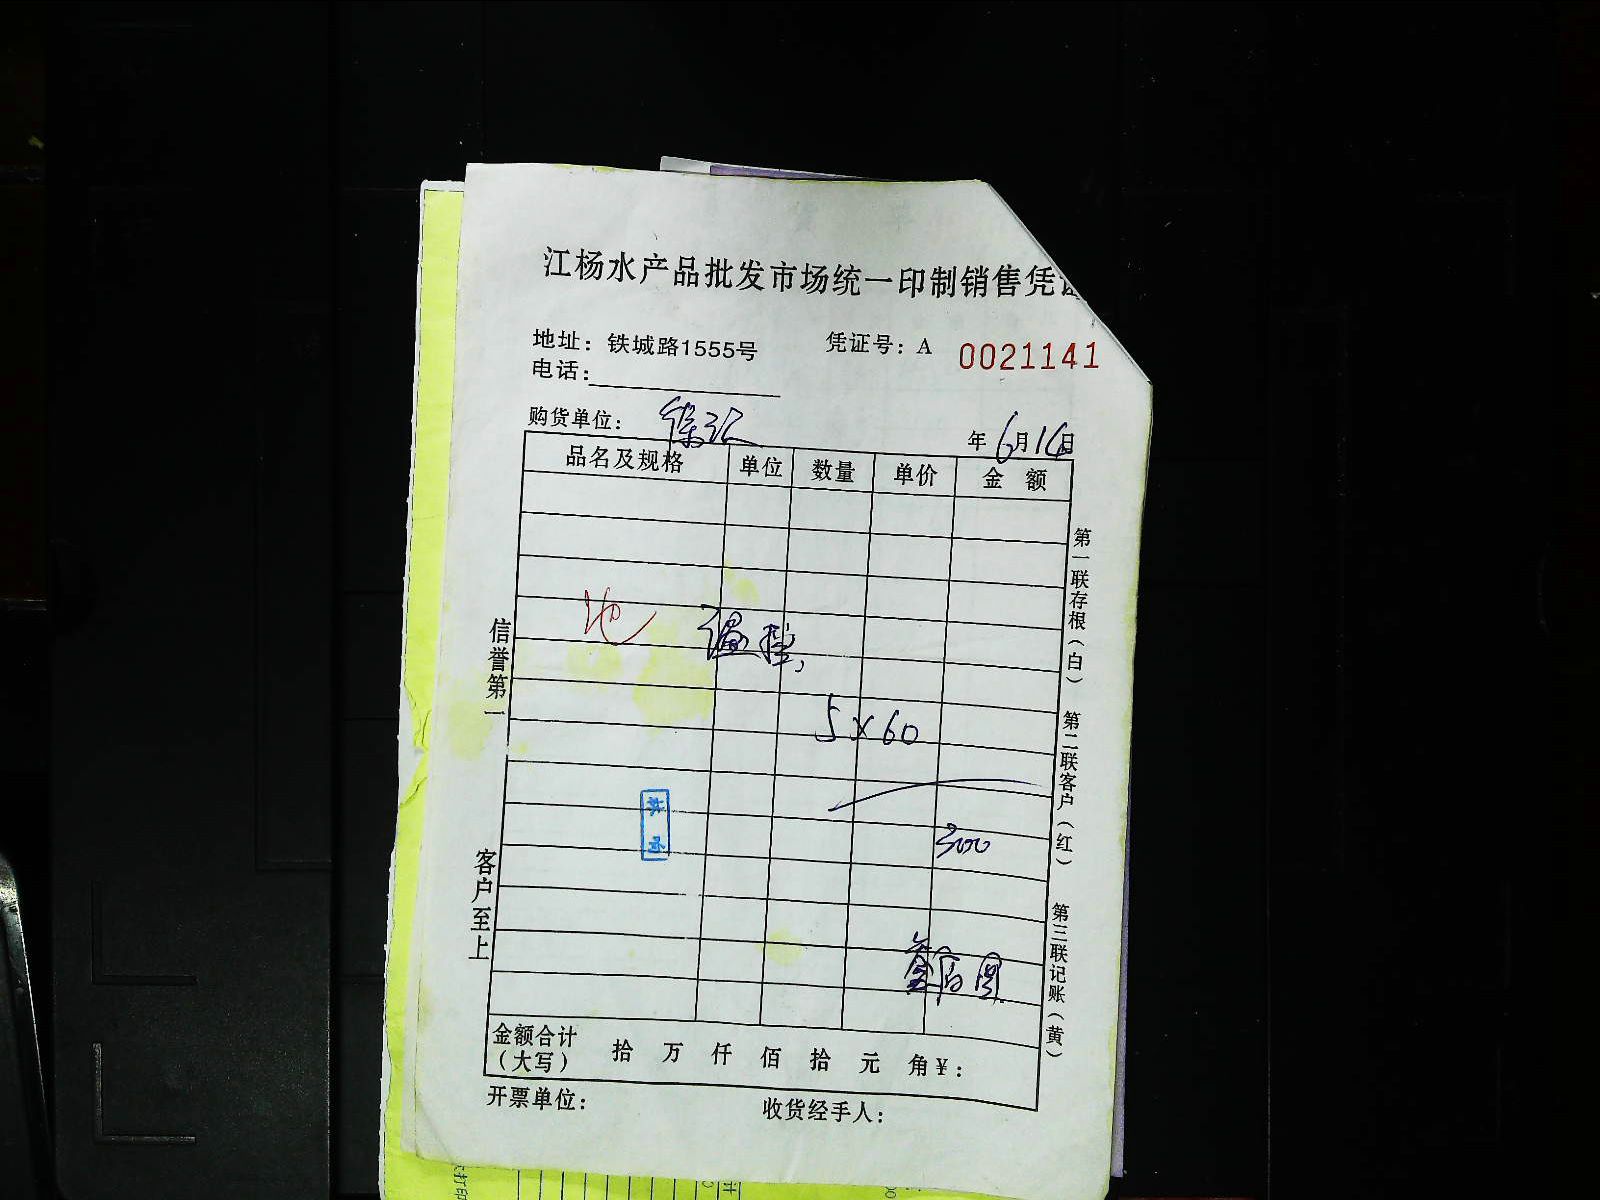 江杨水产品批发市场统一印制销售凭证
地址：铁城路1555号
凭证号：A 0021141
电话：
购货单位：徐汇
年6月16日
品名及规格 单位 数量 单价 金额
5×60
300
叁百圆
金额合计（大写） 拾 万 仟 佰 拾 元 角 ¥：
开票单位：
收货经手人：
信誉第一
客户至上
第一联存根（白）
第二联客户（红）
第三联记账（黄）